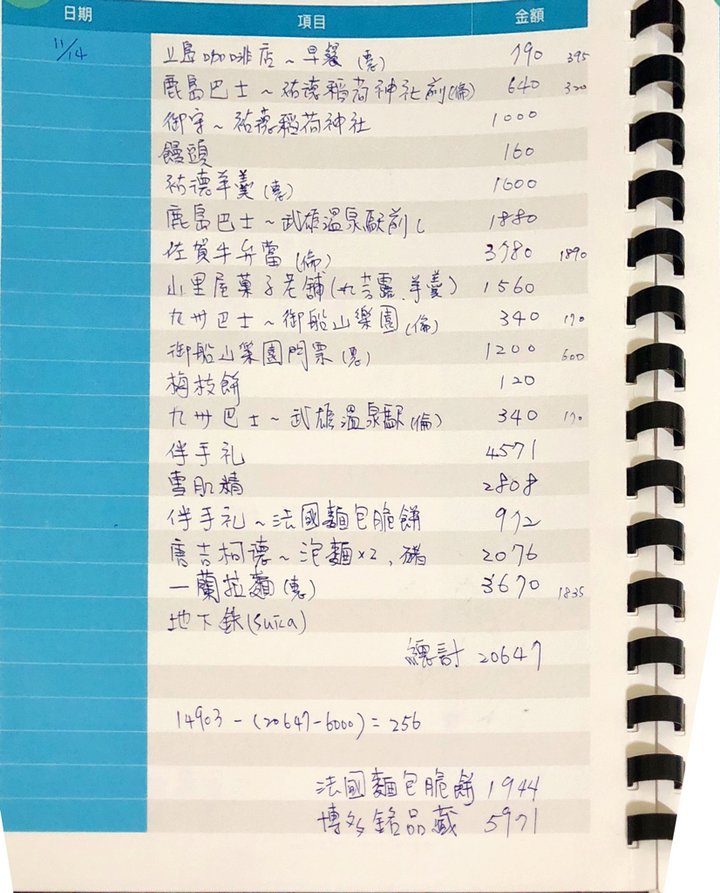 日期 項目 金額
11/14 立島咖啡店~早餐(惠) 790 395
鹿島巴士~祐德稻荷神社前(倫) 640 320
御守~祐德稻荷神社 1000
饅頭 160
祐德羊羹(惠) 1600
鹿島巴士~武雄溫泉駅前 1880
佐賀牛弁當(倫) 3780 1890
山里屋菓子老舖(丸芳露、羊羹) 1560
九州巴士~御船山樂園(倫) 340 170
御船山樂園門票(惠) 1200 600
梅枝餅 120
九州巴士~武雄溫泉駅(倫) 340 170
伴手礼 4571
雪肌精 2808
伴手礼~法國麵包脆餅 972
唐吉柯德~泡麵x2、豬 2076
一蘭拉麵(惠) 3670 1835
地下鉄(suica)
總計 20647
14903-(20647-6000)=256
法國麵包脆餅 1944
博多銘品蔵 5971